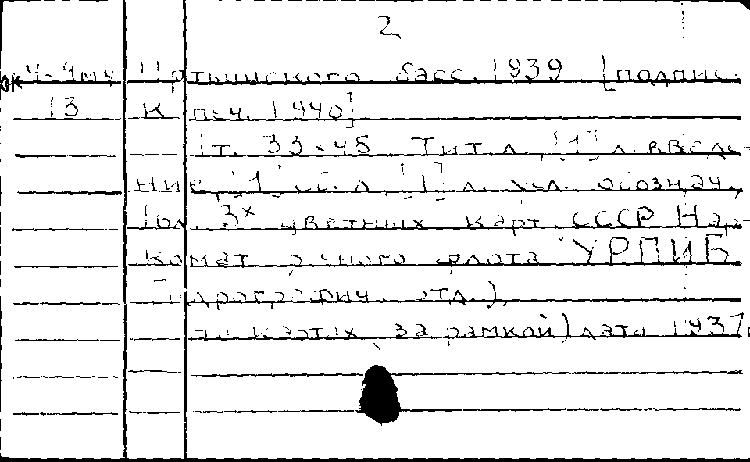 2
Иртышского басс. 1939 [подпис.
13 К печ. 1940]
т. 33×45 Тит. л., [1] л. введе-
ние, [1] сб. л., [1] л. усл. обознач.,
10 л. 3х цветных карт. СССР Нар-
комат речного флота УРПИБ
Гидрографич. отд.)
На картах за рамкой) дата 1937